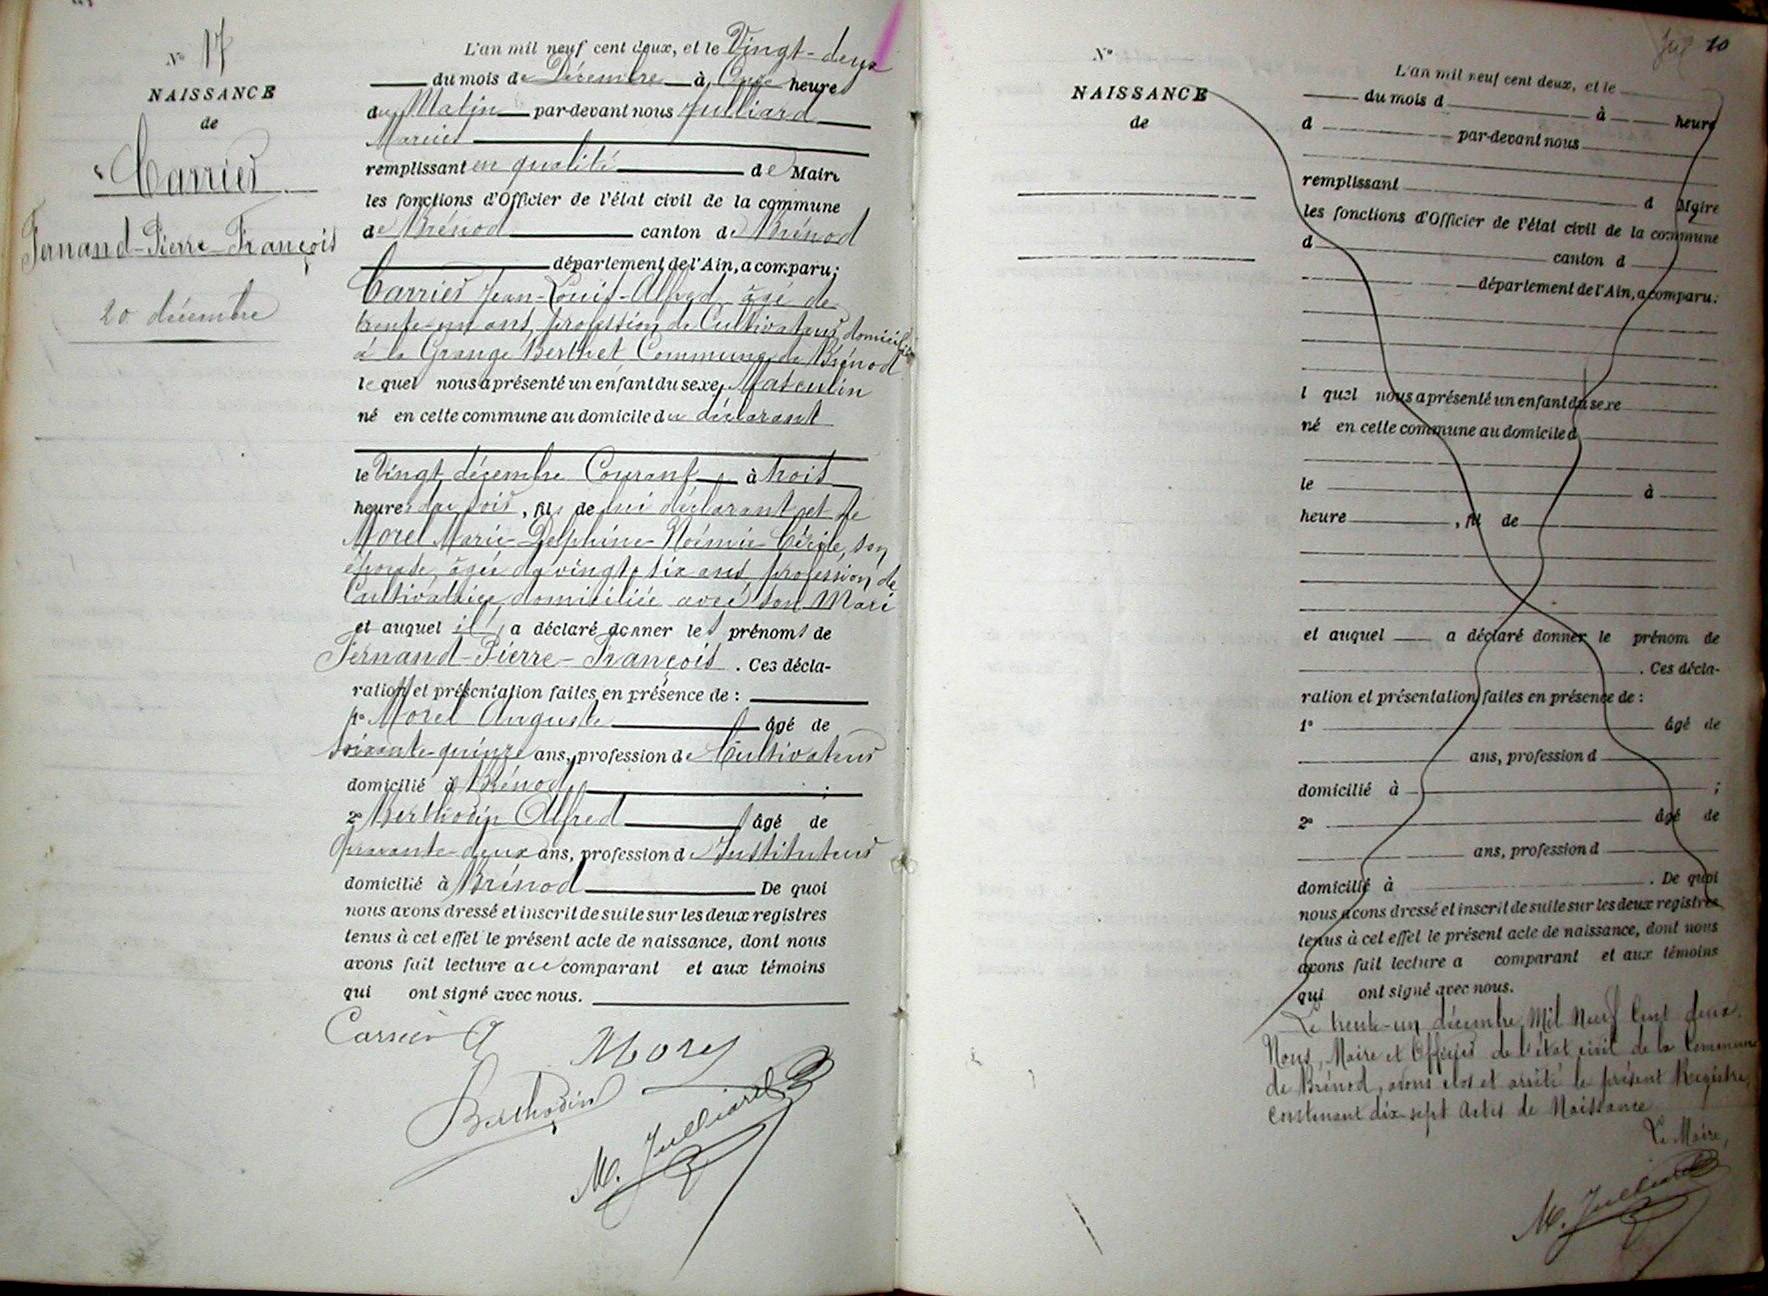 N° 17
NAISSANCE
de
Carrier
Fernand-Pierre-François
20 décembre
L'an mil neuf cent deux, et le Vingt-deux
du mois de Décembre à Onze heures
du Matin par-devant nous Julliard
Marius
remplissant en qualité de Maire
les fonctions d'Officier de l'état civil de la commune
de Brénod canton de Brénod
département de l'Ain, a comparu:
Carrier Jean-Louis-Alfred, âgé de
trente-un ans, profession de Cultivateur, domicilié
à la Grange Berthet Commune de Brénod
lequel nous a présenté un enfant du sexe Masculin
né en cette commune au domicile du déclarant
le Vingt décembre Courant à trois
heures du soir, fils de lui déclarant et de
Morel Marie-Delphine-Noémie-Cécile, son
épouse, âgée de vingt-six ans, profession de
Cultivatrice, domiciliée avec son Mari
et auquel il a déclaré donner les prénoms de
Fernand-Pierre-François. Ces décla-
ration et présentation faites en présence de:
1° Morel Auguste âgé de
soixante-quinze ans, profession de Cultivateur
domicilié à Brénod ;
2° Berthodin Alfred âgé de
Quarante-deux ans, profession d'Instituteur
domicilié à Brénod De quoi
nous avons dressé et inscrit de suite sur les deux registres
tenus à cet effet le présent acte de naissance, dont nous
avons fait lecture au comparant et aux témoins
qui ont signé avec nous.
Carrier A
Morel
Berthodin
M. Julliard
10
N°
NAISSANCE
de
L'an mil neuf cent deux, et le
du mois d à heure
d par-devant nous
remplissant d Maire
les fonctions d'Officier de l'état civil de la commune
d canton d
département de l'Ain, a comparu:
l quel nous a présenté un enfant du sexe
né en cette commune au domicile d
le à
heure , fil de
et auquel a déclaré donner le prénom de
. Ces décla-
ration et présentation faites en présence de:
1° âgé de
ans, profession d
domicilié à ;
2° âgé de
ans, profession d
domicilié à . De quoi
nous avons dressé et inscrit de suite sur les deux registres
tenus à cet effet le présent acte de naissance, dont nous
avons fait lecture a comparant et aux témoins
qui ont signé avec nous.
Le trente-un décembre Mil Neuf Cent deux.
Nous, Maire et Officier de l'état civil de la Commune
de Brénod, avons clos et arrêté le présent Registre,
Contenant dix-sept Actes de Naissance
Le Maire,
M. Julliard